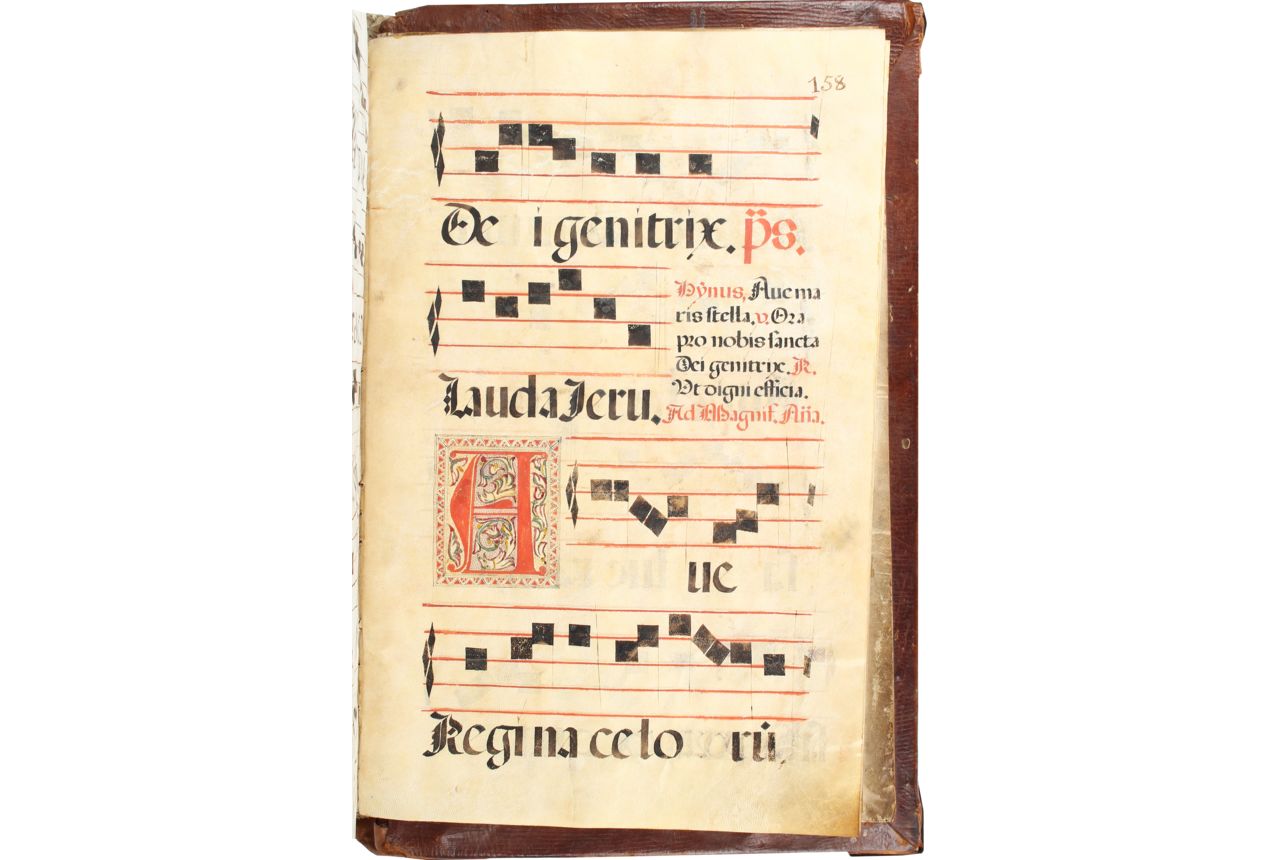 158
De i genitrix. p̈s.
Hẏnus, Aue ma
ris stella. v. Ora
pro nobis sancta
Dei genitrix. R.
Vt digni efficia.
Lauda Ieru. Ad Magnif. Aña.
A ue
Regi na ce lo rũ.